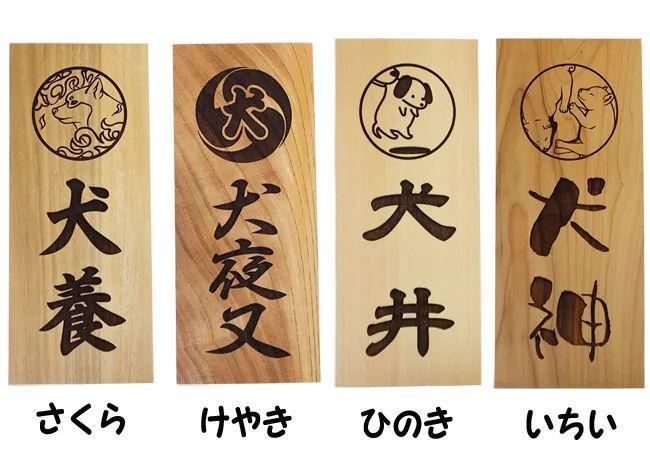 犬養
犬
犬夜叉
犬井
犬神
さくら
けやき
ひのき
いちい